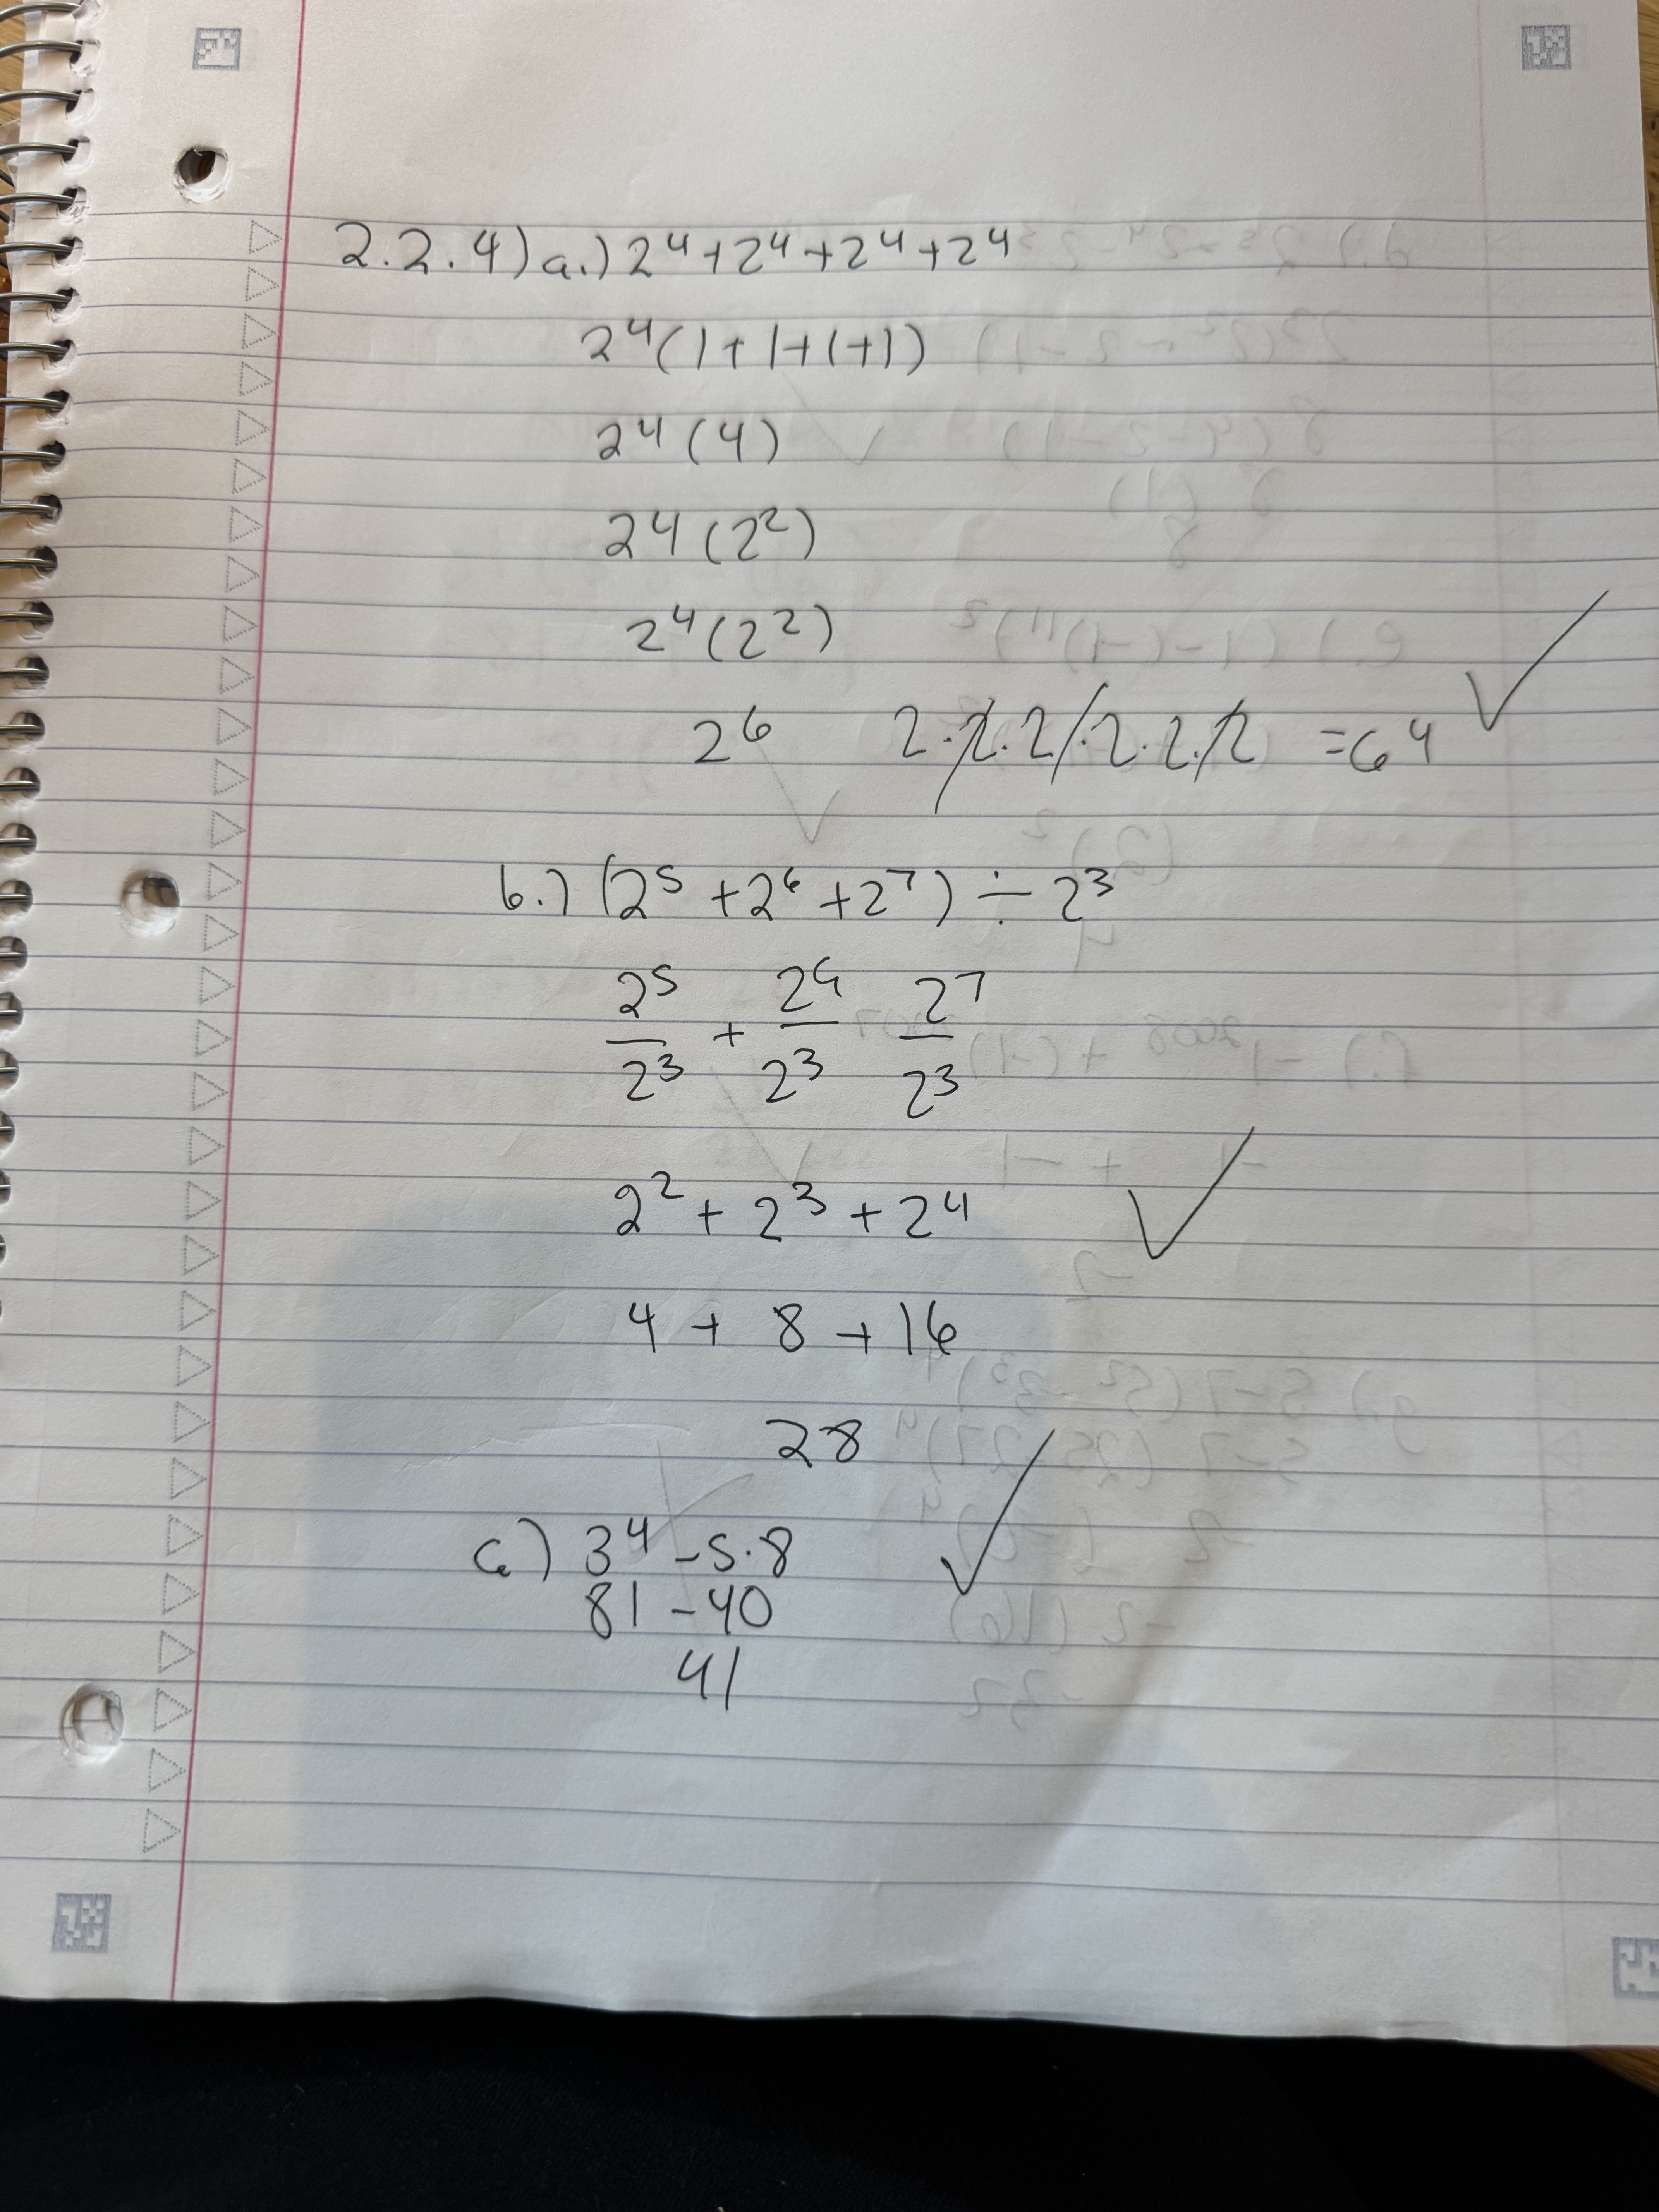 2.2.4) a.) 2⁴+2⁴+2⁴+2⁴
2⁴(1+1+1+1)
2⁴(4)
24(2²)
2⁴(2²)
2⁶ 2·2·2/·2·2·/2 =64 ✓
b.) (2⁵+2⁶+2⁷)÷2³
2⁵/2³ + 2⁶/2³ 2⁷/2³
2²+2³+2⁴ ✓
4+8+16
28
c.) 3⁴-5·8 ✓
81-40
41